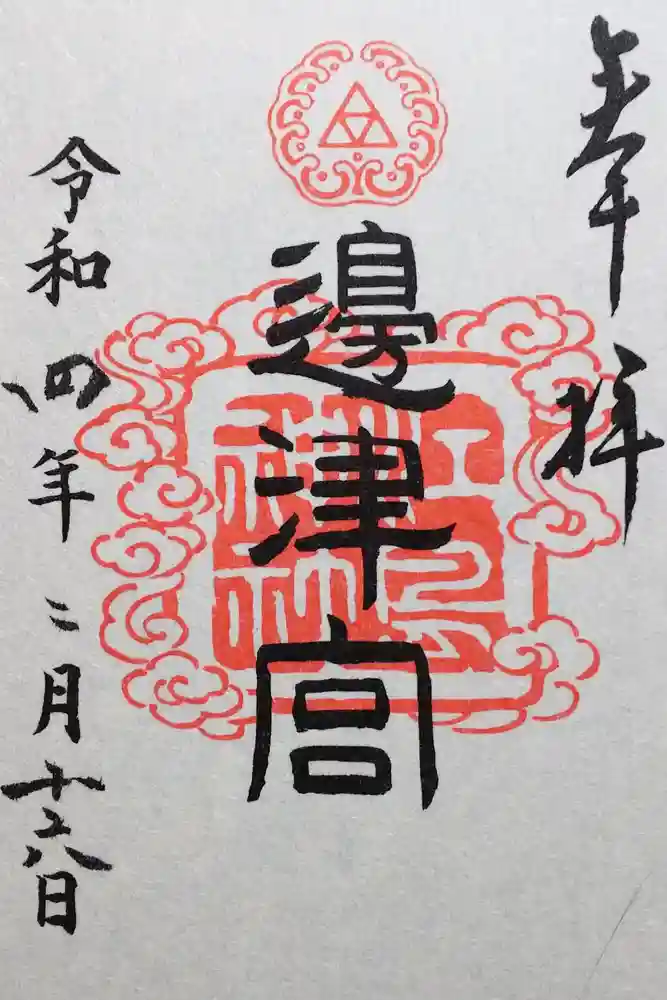 奉拝
邊津宮
令和四年二月十六日